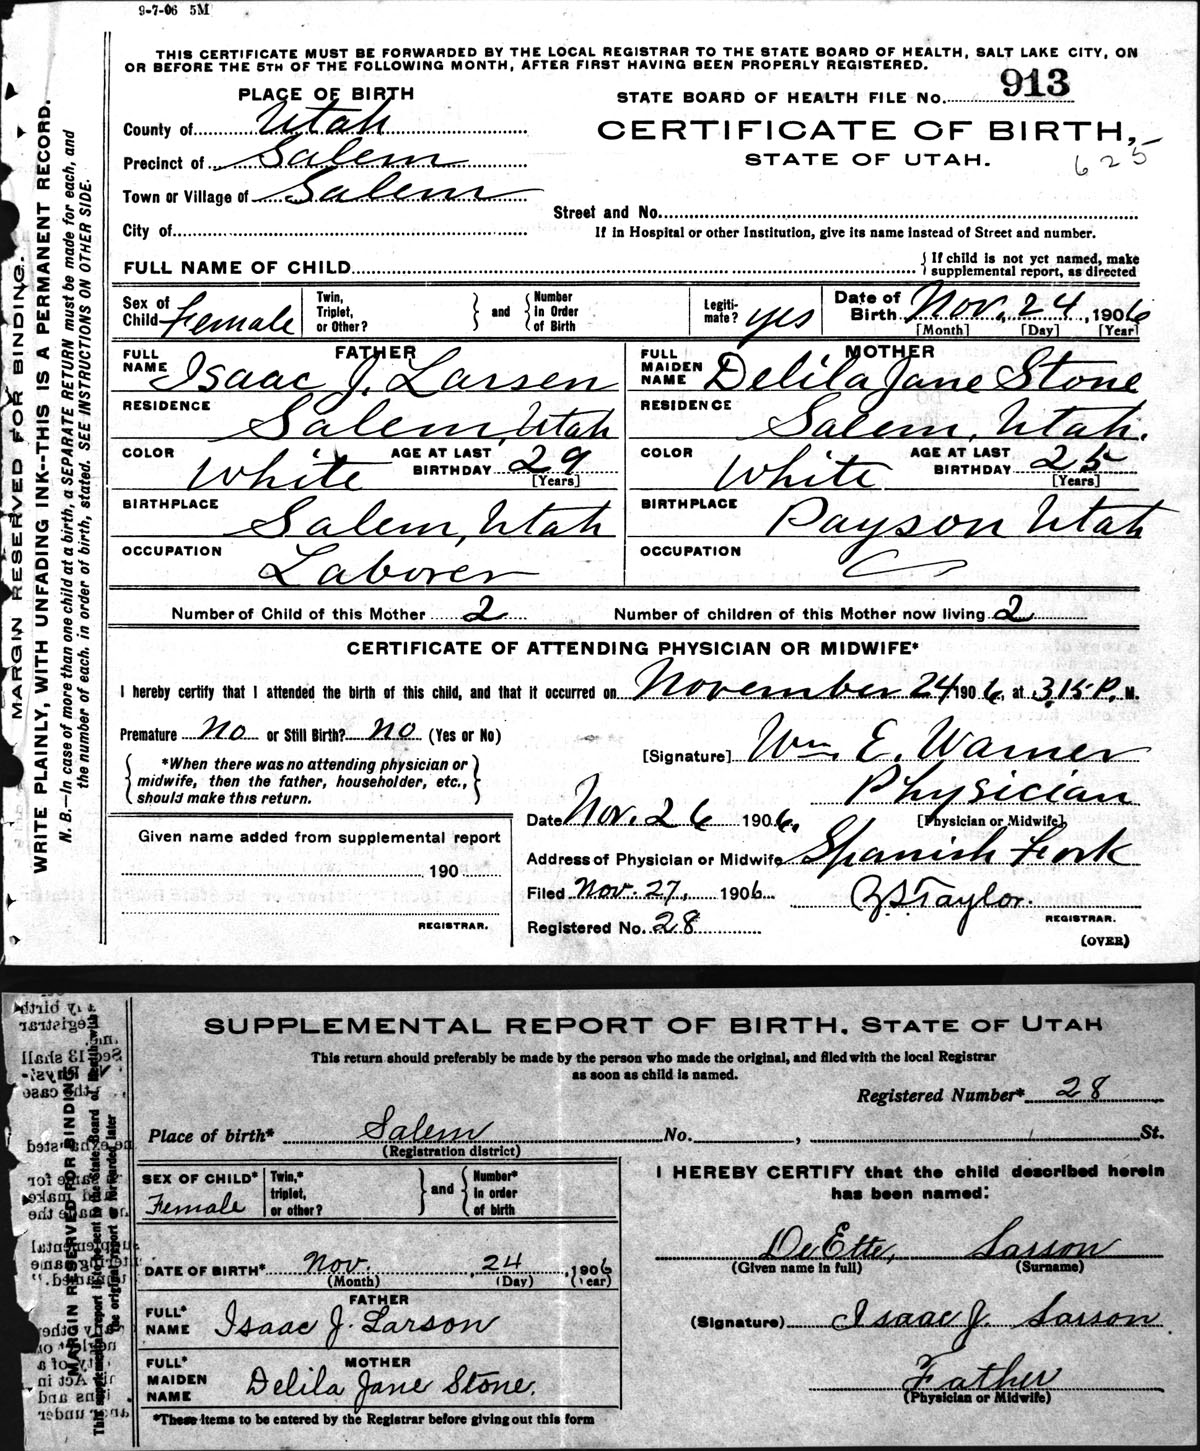 9-7-06 5M
THIS CERTIFICATE MUST BE FORWARDED BY THE LOCAL REGISTRAR TO THE STATE BOARD OF HEALTH, SALT LAKE CITY, ON
OR BEFORE THE 5TH OF THE FOLLOWING MONTH, AFTER FIRST HAVING BEEN PROPERLY REGISTERED.
MARGIN RESERVED FOR BINDING.
WRITE PLAINLY, WITH UNFADING INK--THIS IS A PERMANENT RECORD.
N. B.—In case of more than one child at a birth, a SEPARATE RETURN must be made for each, and
the number of each, in order of birth, stated. SEE INSTRUCTIONS ON OTHER SIDE.
PLACE OF BIRTH
County of Utah
Precinct of Salem
Town or Village of Salem
City of
STATE BOARD OF HEALTH FILE No. 913
CERTIFICATE OF BIRTH,
STATE OF UTAH.
625
Street and No.
If in Hospital or other Institution, give its name instead of Street and number.
FULL NAME OF CHILD
{ If child is not yet named, make
supplemental report, as directed
Sex of Child Female
Twin, Triplet, or Other?
} and {
Number in Order of Birth
Legiti-mate? yes
Date of Birth Nov. 24, 1906
[Month] [Day] [Year]
FATHER
FULL NAME Isaac J. Larsen
RESIDENCE Salem, Utah
COLOR White AGE AT LAST BIRTHDAY 29 [Years]
BIRTHPLACE Salem, Utah
OCCUPATION Laborer
MOTHER
FULL MAIDEN NAME Delila Jane Stone
RESIDENCE Salem, Utah.
COLOR White AGE AT LAST BIRTHDAY 25 [Years]
BIRTHPLACE Payson Utah
OCCUPATION
Number of Child of this Mother 2 Number of children of this Mother now living 2
CERTIFICATE OF ATTENDING PHYSICIAN OR MIDWIFE*
I hereby certify that I attended the birth of this child, and that it occurred on November 24 1906, at 3.15 P. M.
Premature No or Still Birth? No (Yes or No)
{ *When there was no attending physician or
midwife, then the father, householder, etc.,
should make this return. }
[Signature] Wm. E. Warner
Physician
[Physician or Midwife]
Date Nov. 26 1906.
Address of Physician or Midwife Spanish Fork
Filed Nov. 27, 1906
Taylor.
REGISTRAR.
Registered No. 28
(OVER)
Given name added from supplemental report
190
REGISTRAR.
SUPPLEMENTAL REPORT OF BIRTH, STATE OF UTAH
This return should preferably be made by the person who made the original, and filed with the local Registrar
as soon as child is named.
Registered Number* 28
Place of birth* Salem No. , St.
(Registration district)
MARGIN RESERVED FOR BINDING
SEX OF CHILD* Female
Twin,* triplet, or other?
} and {
Number* in order of birth
DATE OF BIRTH* Nov. 24, 1906
(Month) (Day) (Year)
FATHER
FULL* NAME Isaac J. Larson
MOTHER
FULL* MAIDEN NAME Delila Jane Stone.
*These items to be entered by the Registrar before giving out this form
I HEREBY CERTIFY that the child described herein
has been named:
DeEtte, Larson
(Given name in full) (Surname)
(Signature) Isaac J. Larson
Father
(Physician or Midwife)